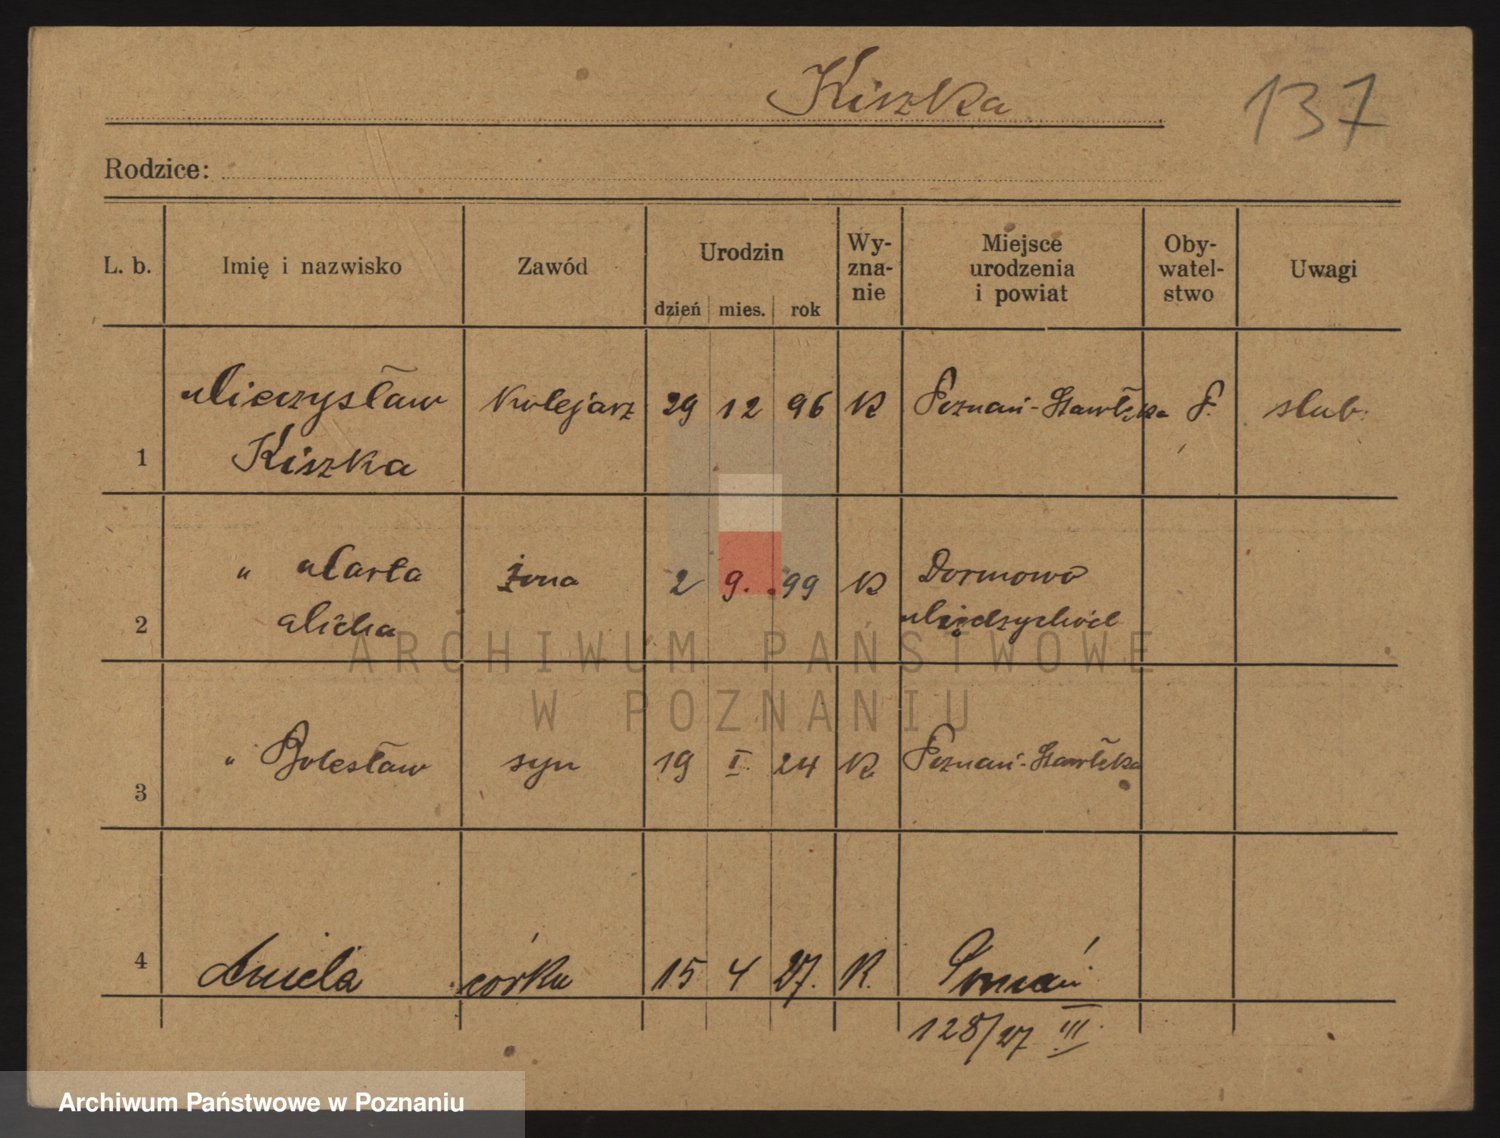 Kiszka
137
Rodzice:
L. b. Imię i nazwisko Zawód Urodzin dzień mies. rok Wy-zna-nie Miejsce urodzenia i powiat Oby-watel-stwo Uwagi
Mieczysław Kolejarz 29 12 96 K Poznań- P. slub.
1 Kiszka
" Marta żona 2 9. 99 K Dormowo
2 Międzychód
" Bolesław syn 19 I. 24 K. Poznań-
3
4 Aniela córka 15 4 27. K. Poznań
128/27 III
ARCHIWUM PAŃSTWOWE
W POZNANIU
Archiwum Państwowe w Poznaniu